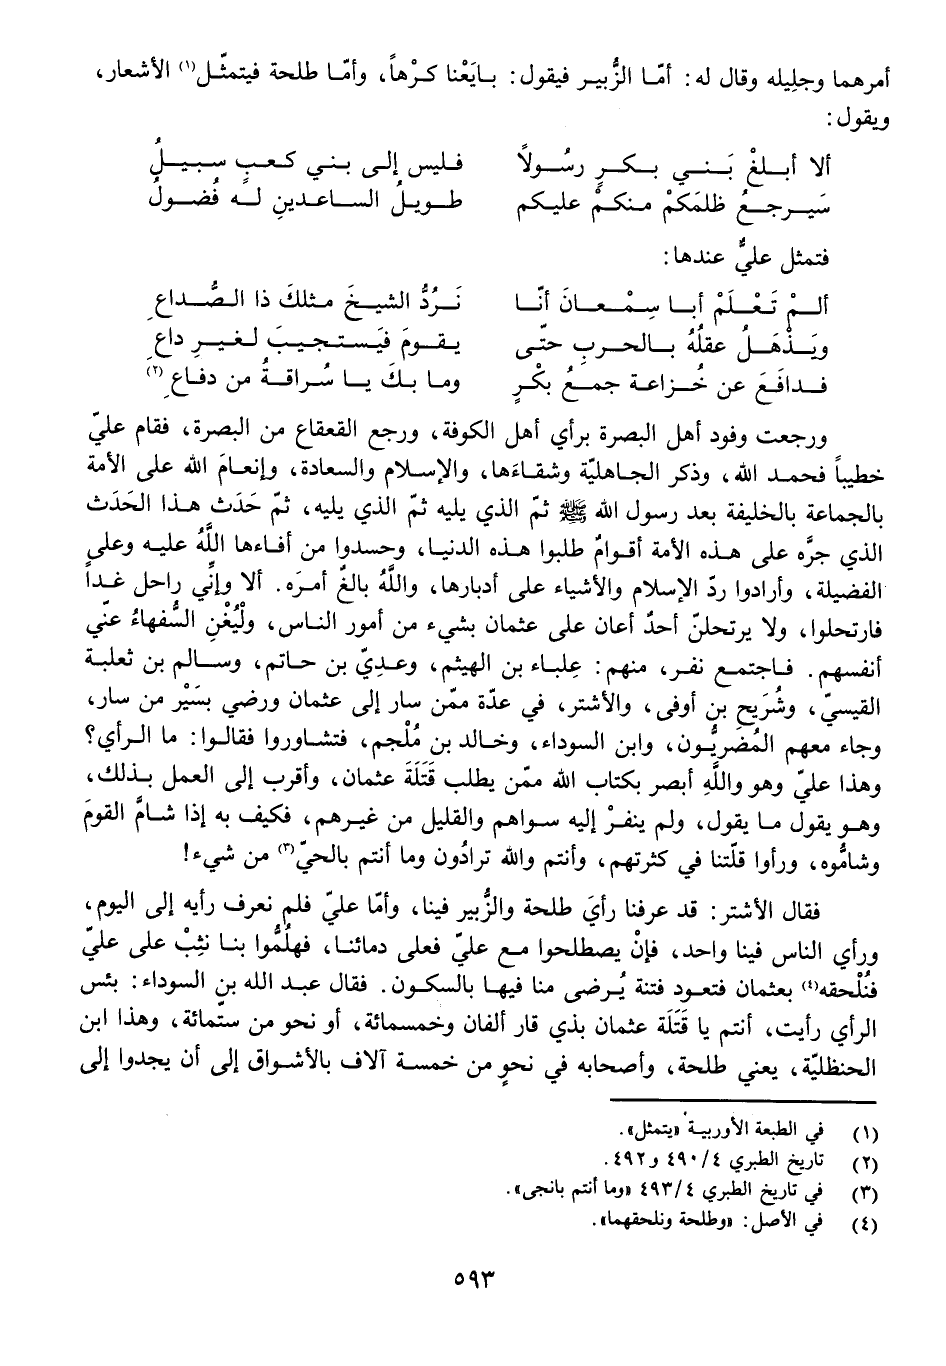 أمرهما وجليله وقال له: أمّا الزُّبير فيقول: بايَعْنا كرْهاً، وأمّا طلحة فيتمثّل(١) الأشعار،
ويقول:
ألا أبلغْ بَني بكرٍ رسُولاً فليس إلى بني كعبٍ سبيلُ
سَيرجعُ ظلمَكمْ منكمْ عليكم طويلُ الساعدينِ له فضُولُ
فتمثل عليٌّ عندها:
ألمْ تَعْلَمْ أبا سِمْعانَ أنّا نَرُدُّ الشيخَ مثلكَ ذا الصُّداعِ
ويَذْهَلُ عقلُهُ بالحربِ حتّى يقومَ فيَستجيبَ لغيرِ داعِ
فدافَعَ عن خُزاعةَ جمعُ بكْرٍ وما بكَ يا سُراقةُ من دفاعِ(٢)
ورجعت وفود أهل البصرة برأي أهل الكوفة، ورجع القعقاع من البصرة، فقام عليّ
خطيباً فحمد الله، وذكر الجاهليّة وشقاءَها، والإسلام والسعادة، وإنعامَ الله على الأمة
بالجماعة بالخليفة بعد رسول الله ﷺ ثمّ الذي يليه ثمّ الذي يليه، ثمّ حَدَث هذا الحَدَث
الذي جرّه على هذه الأمة أقوامٌ طلبوا هذه الدنيا، وحسدوا من أفاءها اللَّهُ عليه وعلى
الفضيلة، وأرادوا ردّ الإسلام والأشياء على أدبارها، واللَّهُ بالغٌ أمرَه. ألا وإنّي راحل غداً
فارتحلوا، ولا يرتحلنّ أحدٌ أعان على عثمان بشيء من أمور الناس، ولْيُغْنِ السُّفهاءُ عنّي
أنفسهم. فاجتمع نفر، منهم: عِلباء بن الهيثم، وعديّ بن حاتم، وسالم بن ثعلبة
القيسيّ، وشُرَيح بن أوفى، والأشتر، في عدّة ممّن سار إلى عثمان ورضي بسَيْر من سار،
وجاء معهم المُضَرِيُّون، وابن السوداء، وخالد بن مُلْجم، فتشاوروا فقالوا: ما الرأي؟
وهذا عليّ وهو واللَّهِ أبصر بكتاب الله ممّن يطلب قَتَلَةَ عثمان، وأقرب إلى العمل بذلك،
وهو يقول ما يقول، ولم ينفرْ إليه سواهم والقليل من غيرهم، فكيف به إذا شامَّ القومَ
وشامُّوه، ورأوا قلّتنا في كثرتهم، وأنتم والله ترادُون وما أنتم بالحيّ(٣) من شيء!
فقال الأشتر: قد عرفنا رأيَ طلحة والزُّبير فينا، وأمّا عليّ فلم نعرف رأيه إلى اليوم،
ورأي الناس فينا واحد، فإنْ يصطلحوا مع عليّ فعلى دمائنا، فهلُمُّوا بنا نثِبْ على عليّ
فنُلْحقه(٤) بعثمان فتعود فتنة يُرضى منا فيها بالسكون. فقال عبد الله بن السوداء: بئس
الرأي رأيت، أنتم يا قَتَلَة عثمان بذي قار ألفان وخمسمائة، أو نحو من ستّمائة، وهذا ابن
الحنظليّة، يعني طلحة، وأصحابه في نحوٍ من خمسة آلاف بالأشواق إلى أن يجدوا إلى
(١) في الطبعة الأوربية «يتمثل».
(٢) تاريخ الطبري ٤/ ٤٩٠ و٤٩٢.
(٣) في تاريخ الطبري ٤/ ٤٩٣ «وما أنتم بانجى».
(٤) في الأصل: «وطلحة ونلحقهما».
٥٩٣